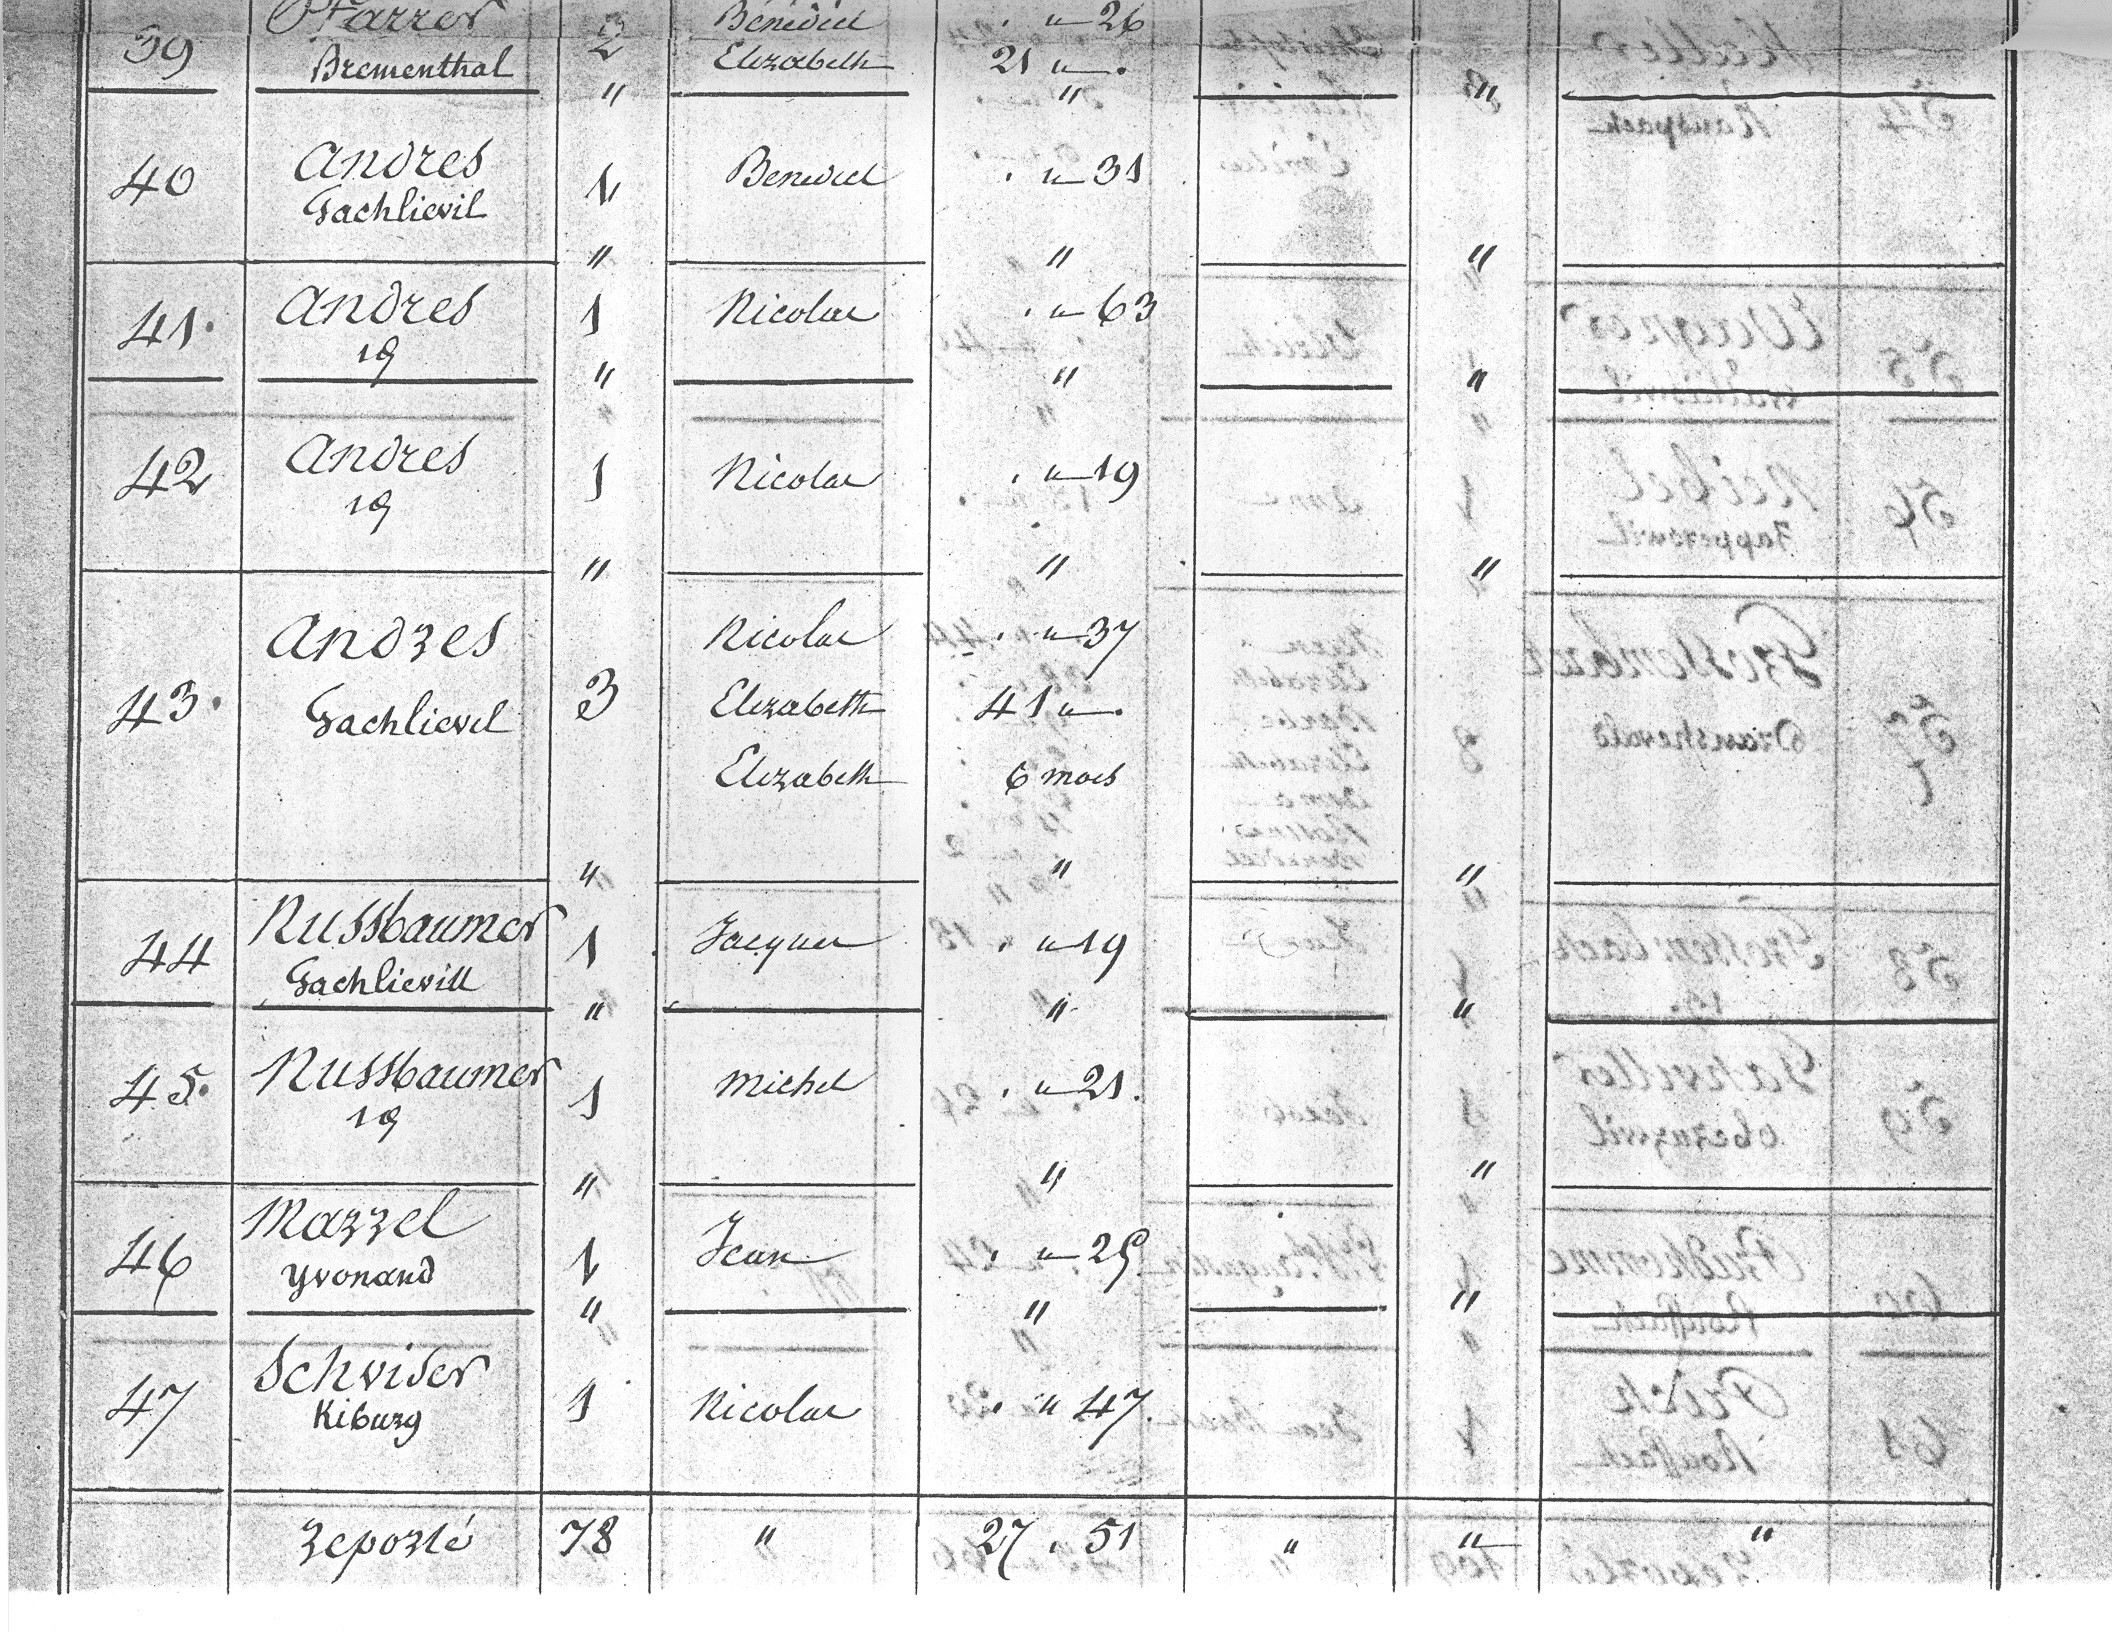 39 Pfarrer 2 Bénédict . " 26
Brementhal Elizabeth 21 " .
" " "
40 Andres 1 Benedict . " 31
Gachlievil
" " "
41. Andres 1 Nicolas . " 63
id
" " "
42 Andres 1 Nicolas . " 19
id
" " "
Andres Nicolas . " 37
43. Gachlievil 3 Elizabeth 41 " .
Elizabeth 6 mois
" " "
44 Nussbaumer 1 Jacques . " 19
Gachlievill
" " "
45. Nussbaumer 1 Michel . " 21.
id
" " "
46 Marrel 1 Jean . " 25
Yvonand
" " "
47 Schviser 1 Nicolas . " 47.
Kiburg
reporté 78 " 27 " 51 " " "